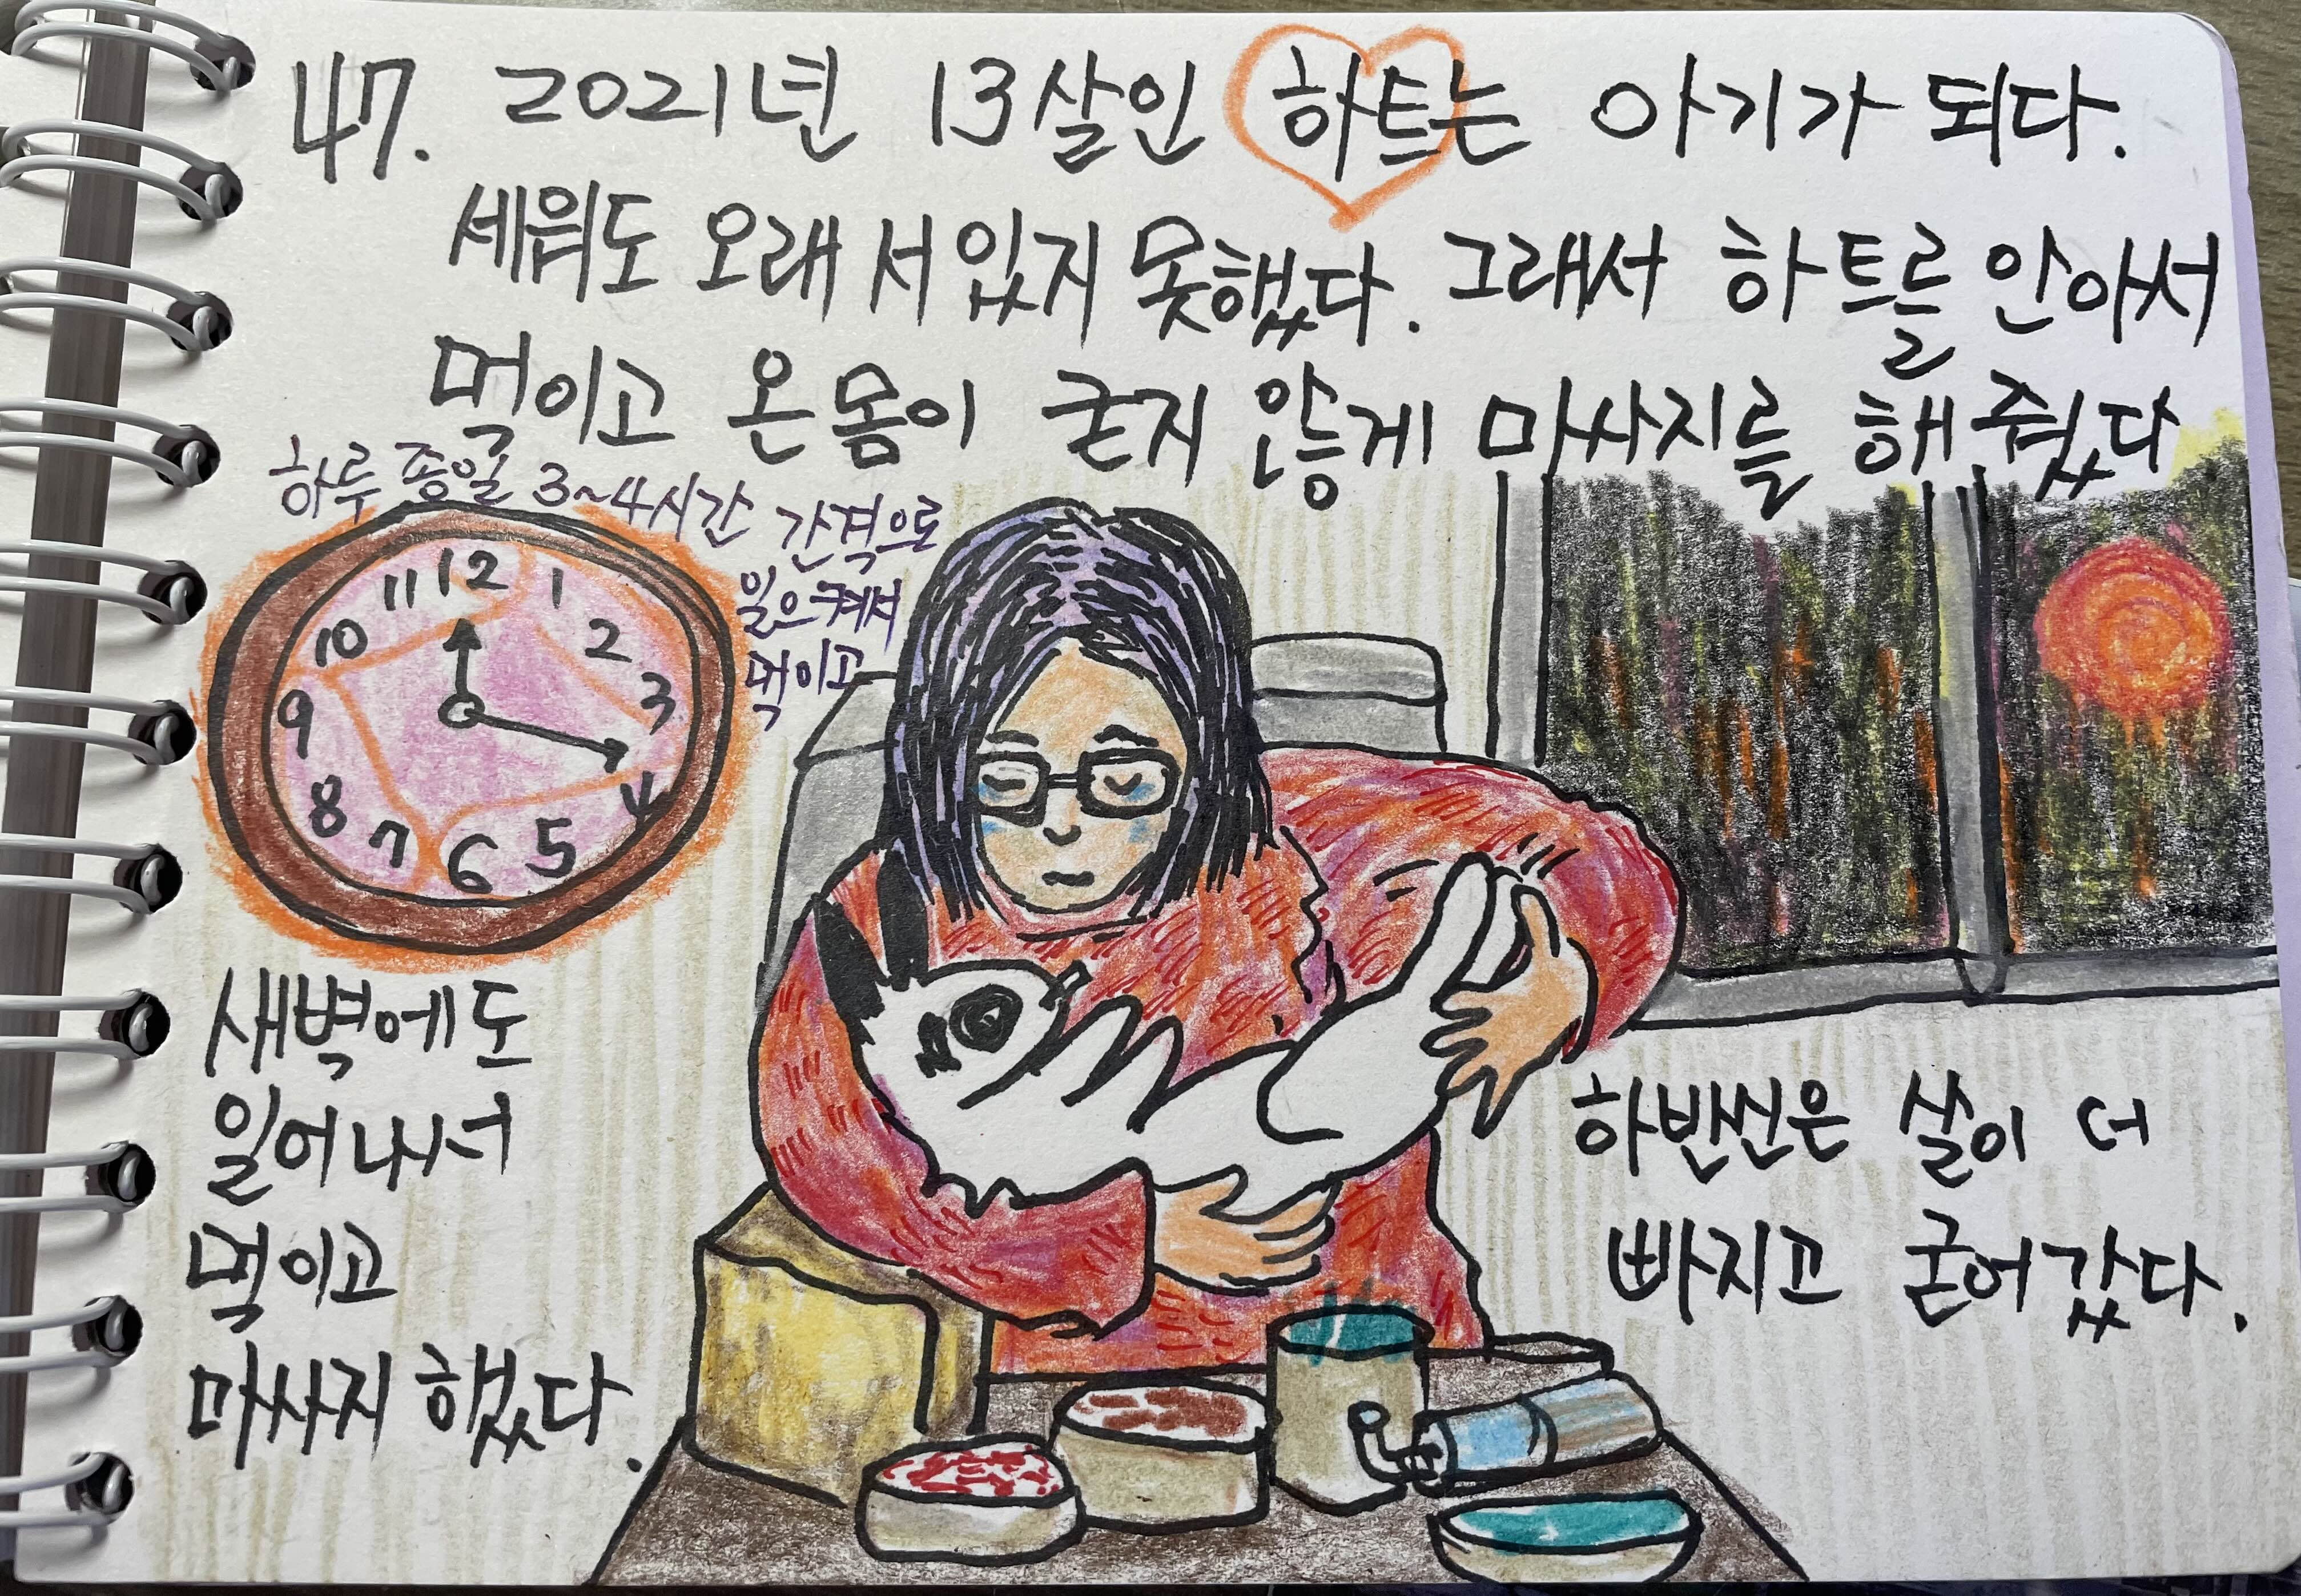 47. 2021년 13살인 하트는 아기가 되다.
세워도 오래 서있지 못했다. 그래서 하트를 안아서
먹이고 온몸이 굳지 않게 마사지를 해 줬다
하루 종일 3~4시간 간격으로
일으켜서
먹이고
11 12 1
10 2
9 3
8 4
7 6 5
새벽에도
일어나서
먹이고
마사지 했다.
하반신은 살이 더
빠지고 굳어갔다.